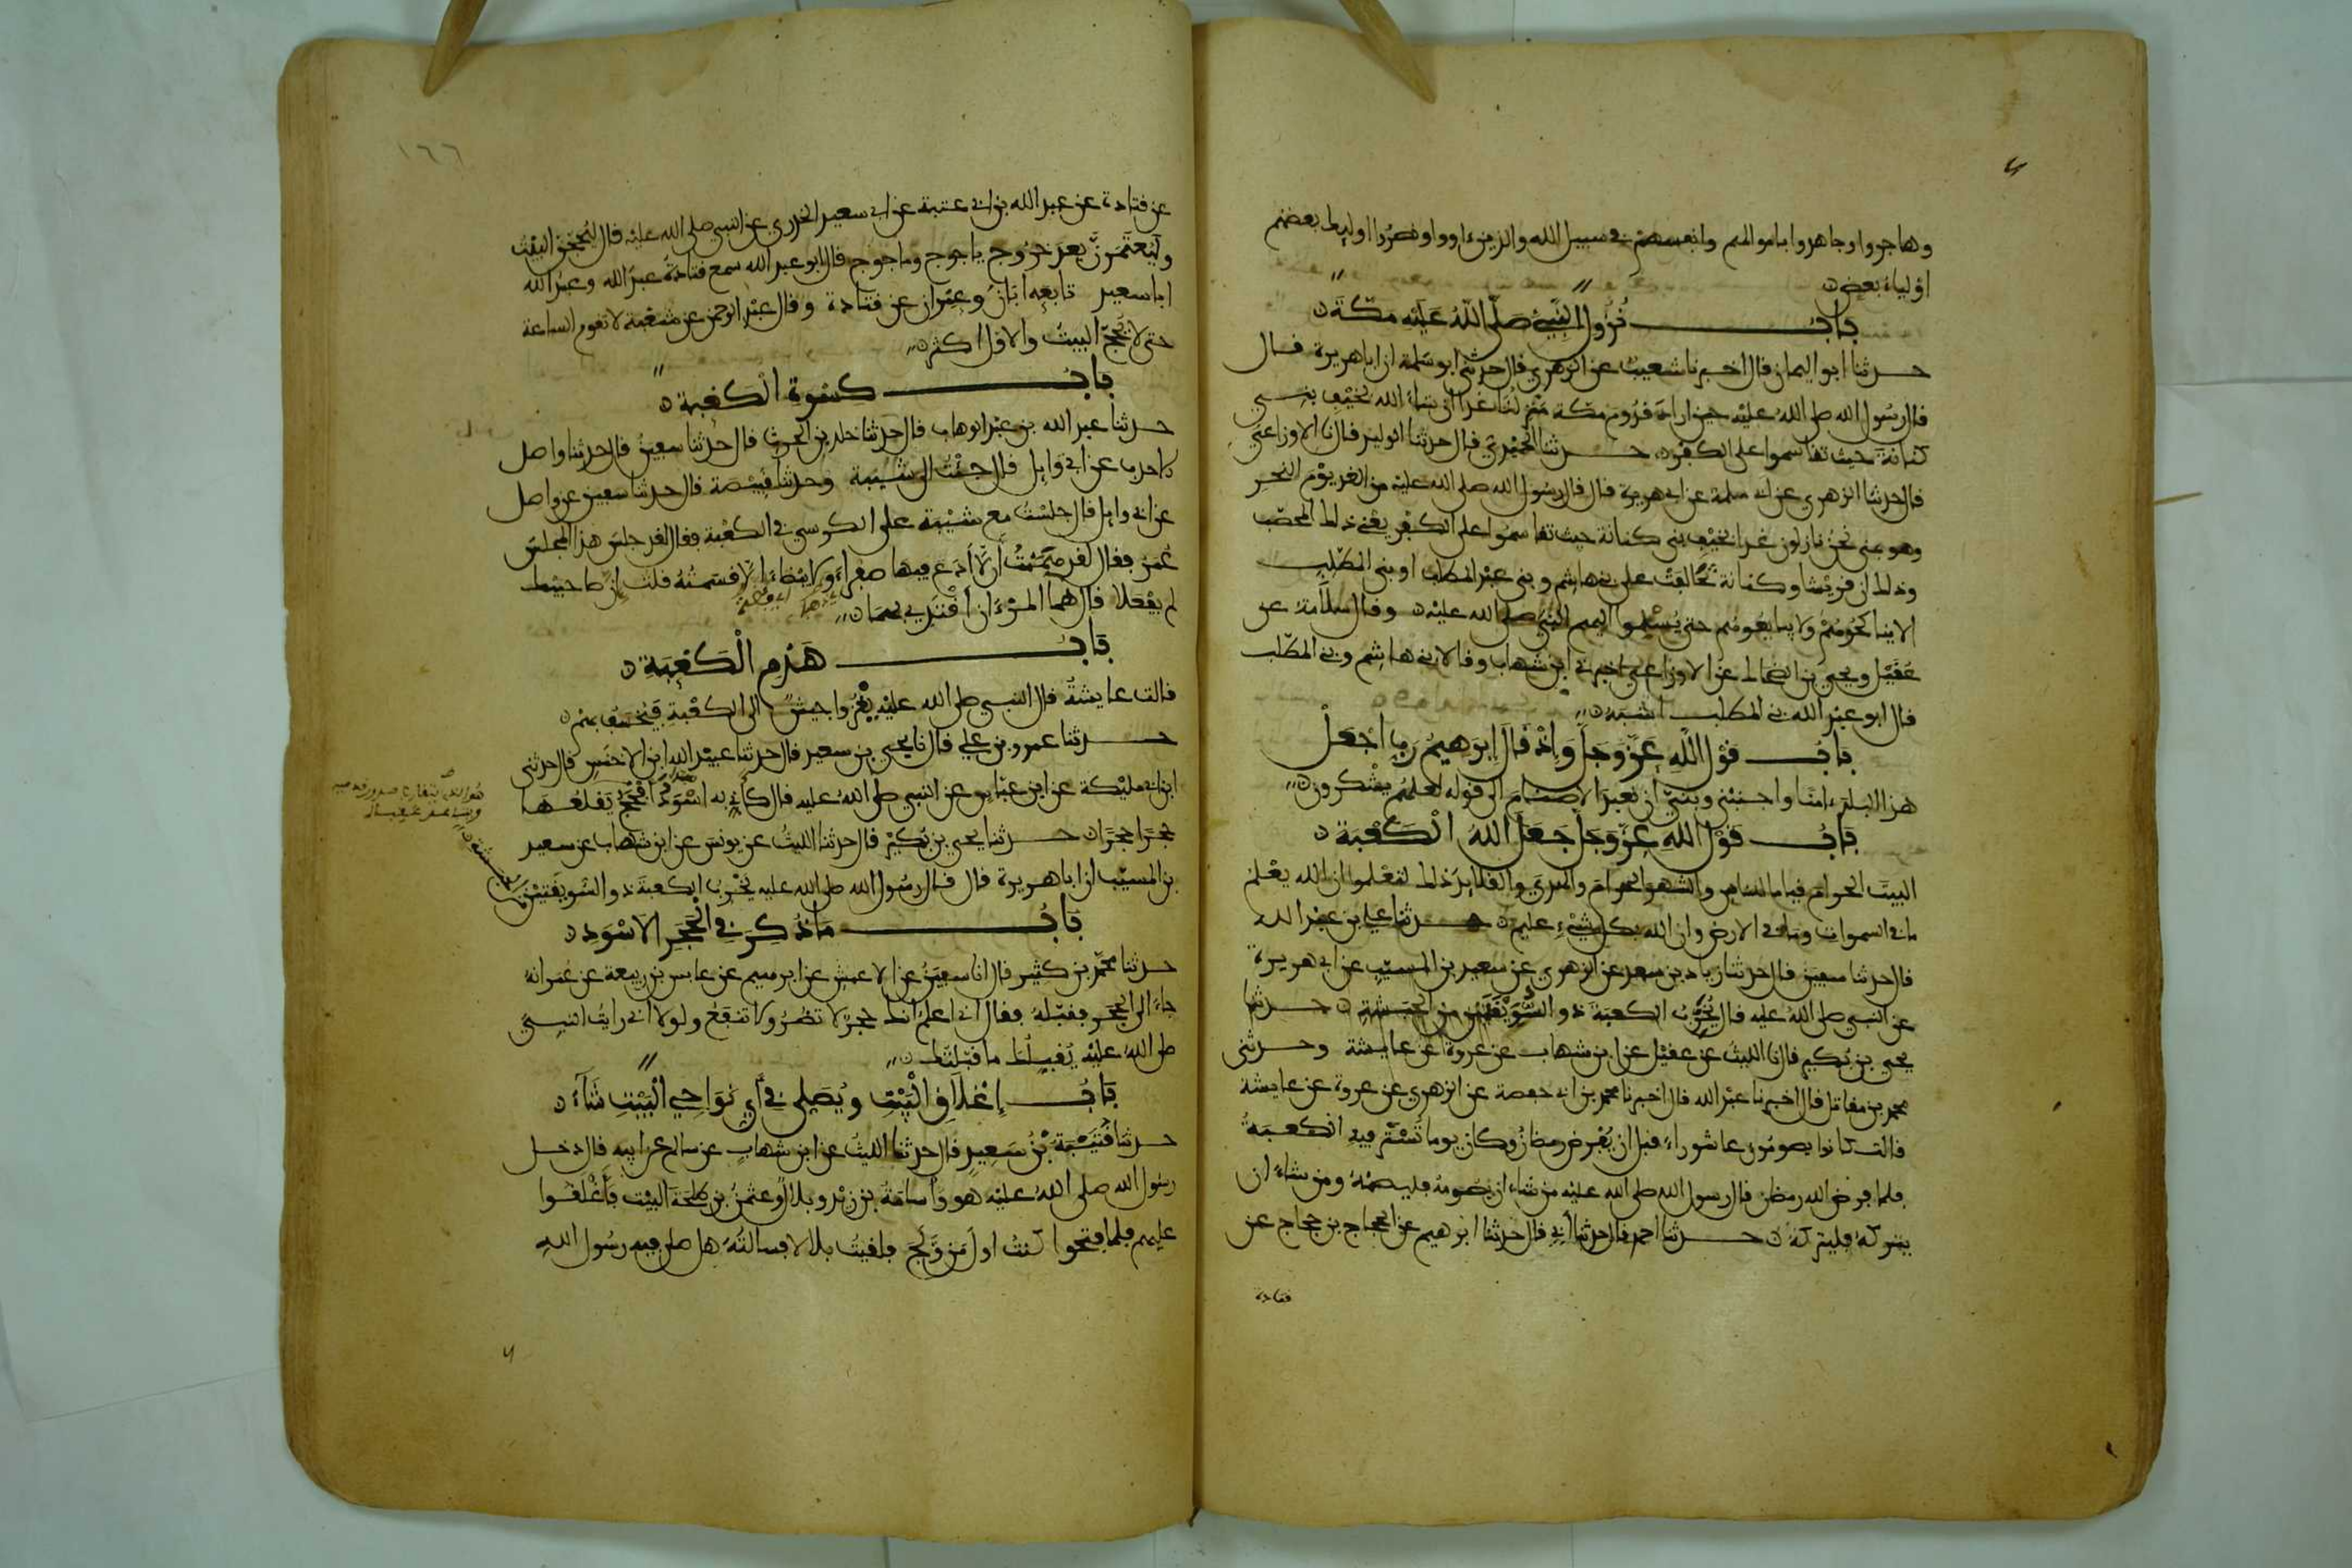 وهاجروا وجاهدوا باموالهم وانفسهم في سبيل الله والذين ءاووا ونصروا اوليك بعضهم
اولياء بعض
باب نزول النبي صلى الله عليه مكة
حدثنا ابو اليمان قال اخبرنا شعيب عن الزهري قال حدثني ابو سلمة ان ابا هريرة قال
قال رسول الله صلى الله عليه حين اراد قدوم مكة منزلنا غدا ان شاء الله بخيف بني
كنانة حيث تقاسموا على الكفر حدثنا الحميدي قال حدثنا الوليد قال نا الاوزاعي
قال حدثنا الزهري عن ابي سلمة عن ابي هريرة قال قال رسول الله صلى الله عليه من الغد يوم النحر
وهو بمنى نحن نازلون غدا بخيف بني كنانة حيث تقاسموا على الكفر يعني ذلك المحصب
وذلك ان قريشا وكنانة تحالفت على بني هاشم وبني عبد المطلب او بني المطلب
الا يناكحوهم ولا يبايعوهم حتى يسلموا اليهم النبي صلى الله عليه وقال سلامة عن
عقيل ويحيى بن الضحاك عن الاوزاعي اخبرني ابن شهاب وقالا بني هاشم وبني المطلب
قال ابو عبد الله بني المطلب اشبه
باب قول الله عز وجل واذ قال ابرهيم رب اجعل
هذا البلد ءامنا واجنبني وبني ان نعبد الاصنام الى قوله لعلهم يشكرون
باب قول الله عز وجل جعل الله الكعبة
البيت الحرام قياما للناس والشهر الحرام والهدي والقلايد ذلك لتعلموا ان الله يعلم
ما في السموات وما في الارض وان الله بكل شيء عليم حدثنا علي بن عبد الله
قال حدثنا سفين قال حدثنا زياد بن سعد عن الزهري عن سعيد بن المسيب عن ابي هريرة
عن النبي صلى الله عليه قال يخرب الكعبة ذو السويقتين من الحبشة حدثنا
يحيى بن بكير قال نا الليث عن عقيل عن ابن شهاب عن عروة عن عايشة وحدثني
محمد بن مقاتل قال اخبرنا عبد الله قال اخبرنا محمد بن ابي حفصة عن الزهري عن عروة عن عايشة
قالت كانوا يصومون عاشوراء قبل ان يفرض رمضان وكان يوما تستر فيه الكعبة
فلما فرض الله رمضن قال رسول الله صلى الله عليه من شاء ان يصومه فليصمه ومن شاء ان
يتركه فليتركه حدثنا احمد قال حدثنا ابي قال حدثنا ابرهيم عن الحجاج بن حجاج عن
قتادة
١٦٦
عن قتادة عن عبد الله بن ابي عتبة عن ابي سعيد الخدري عن النبي صلى الله عليه قال ليحجن البيت
وليعتمرن بعد خروج ياجوج وماجوج قال ابو عبد الله سمع قتادة عبد الله وعبد الله
ابا سعيد تابعه ابان وعمران عن قتادة وقال عبد الرحمن عن شعبة لا تقوم الساعة
حتى لا يحج البيت والاول اكثر
باب كسوة الكعبة
حدثنا عبد الله بن عبد الوهاب قال حدثنا خلد بن الحرث قال حدثنا سفين قال حدثنا واصل
الاحدب عن ابي وايل قال جئت الى شيبة وحدثنا قبيصة قال حدثنا سفين عن واصل
عن ابي وايل قال جلست مع شيبة على الكرسي في الكعبة فقال لقد جلس هذا المجلس
عمر فقال لقد هممت ان لا ادع فيها صفراء ولا بيضاء الا قسمته قلت ان صاحبيك
لم يفعلا قال هما المرءان اقتدي بهما
باب هدم الكعبة
قالت عايشة قال النبي صلى الله عليه يغزوا جيش الى الكعبة فيخسف بهم
حدثنا عمرو بن علي قال نا يحيى بن سعيد قال حدثنا عبيد الله ابن الاخنس قال حدثني
ابن ابي مليكة عن ابن عباس عن النبي صلى الله عليه قال كاني به اسود افحج يقلعها
حجرا حجرا حدثنا يحيى بن بكير قال حدثنا الليث عن يونس عن ابن شهاب عن سعيد
بن المسيب ان ابا هريرة قال قال رسول الله صلى الله عليه يخرب الكعبة ذو السويقتين
من الحبشة
باب ما ذكر في الحجر الاسود
حدثنا محمد بن كثير قال انا سفين عن الاعمش عن ابرهيم عن عابس بن ربيعة عن عمر انه
جاء الى الحجر فقبله فقال اني اعلم انك حجر لا تضر ولا تنفع ولولا اني رايت النبي
صلى الله عليه يقبلك ما قبلتك
باب اغلاق البيت ويصلي في اي نواحي البيت شاء
حدثنا قتيبة بن سعيد قال حدثنا الليث عن ابن شهاب عن سالم عن ابيه قال دخل
رسول الله صلى الله عليه هو واسامة بن زيد وبلال وعثمن بن طلحة البيت فاغلقوا
عليهم فلما فتحوا كنت اول من ولج فلقيت بلالا فسالته هل صلى فيه رسول الله